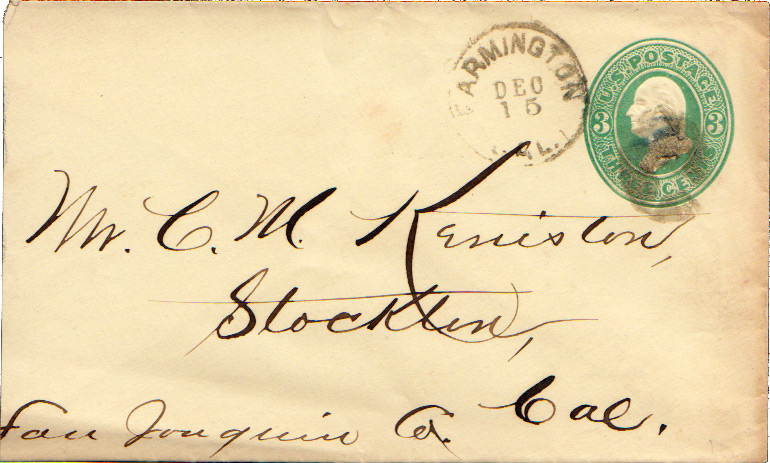 FARMINGTON
DEC
15
CAL.
U.S. POSTAGE
3 3
THREE CENTS
Mr. C. M. Keniston,
Stockton,
San Joaquin Co. Cal.